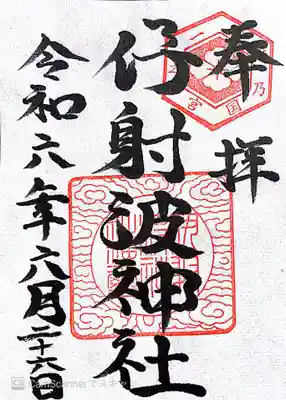 奉拝
伊射波神社
令和六年六月二十六日
CamScannerでスキャン